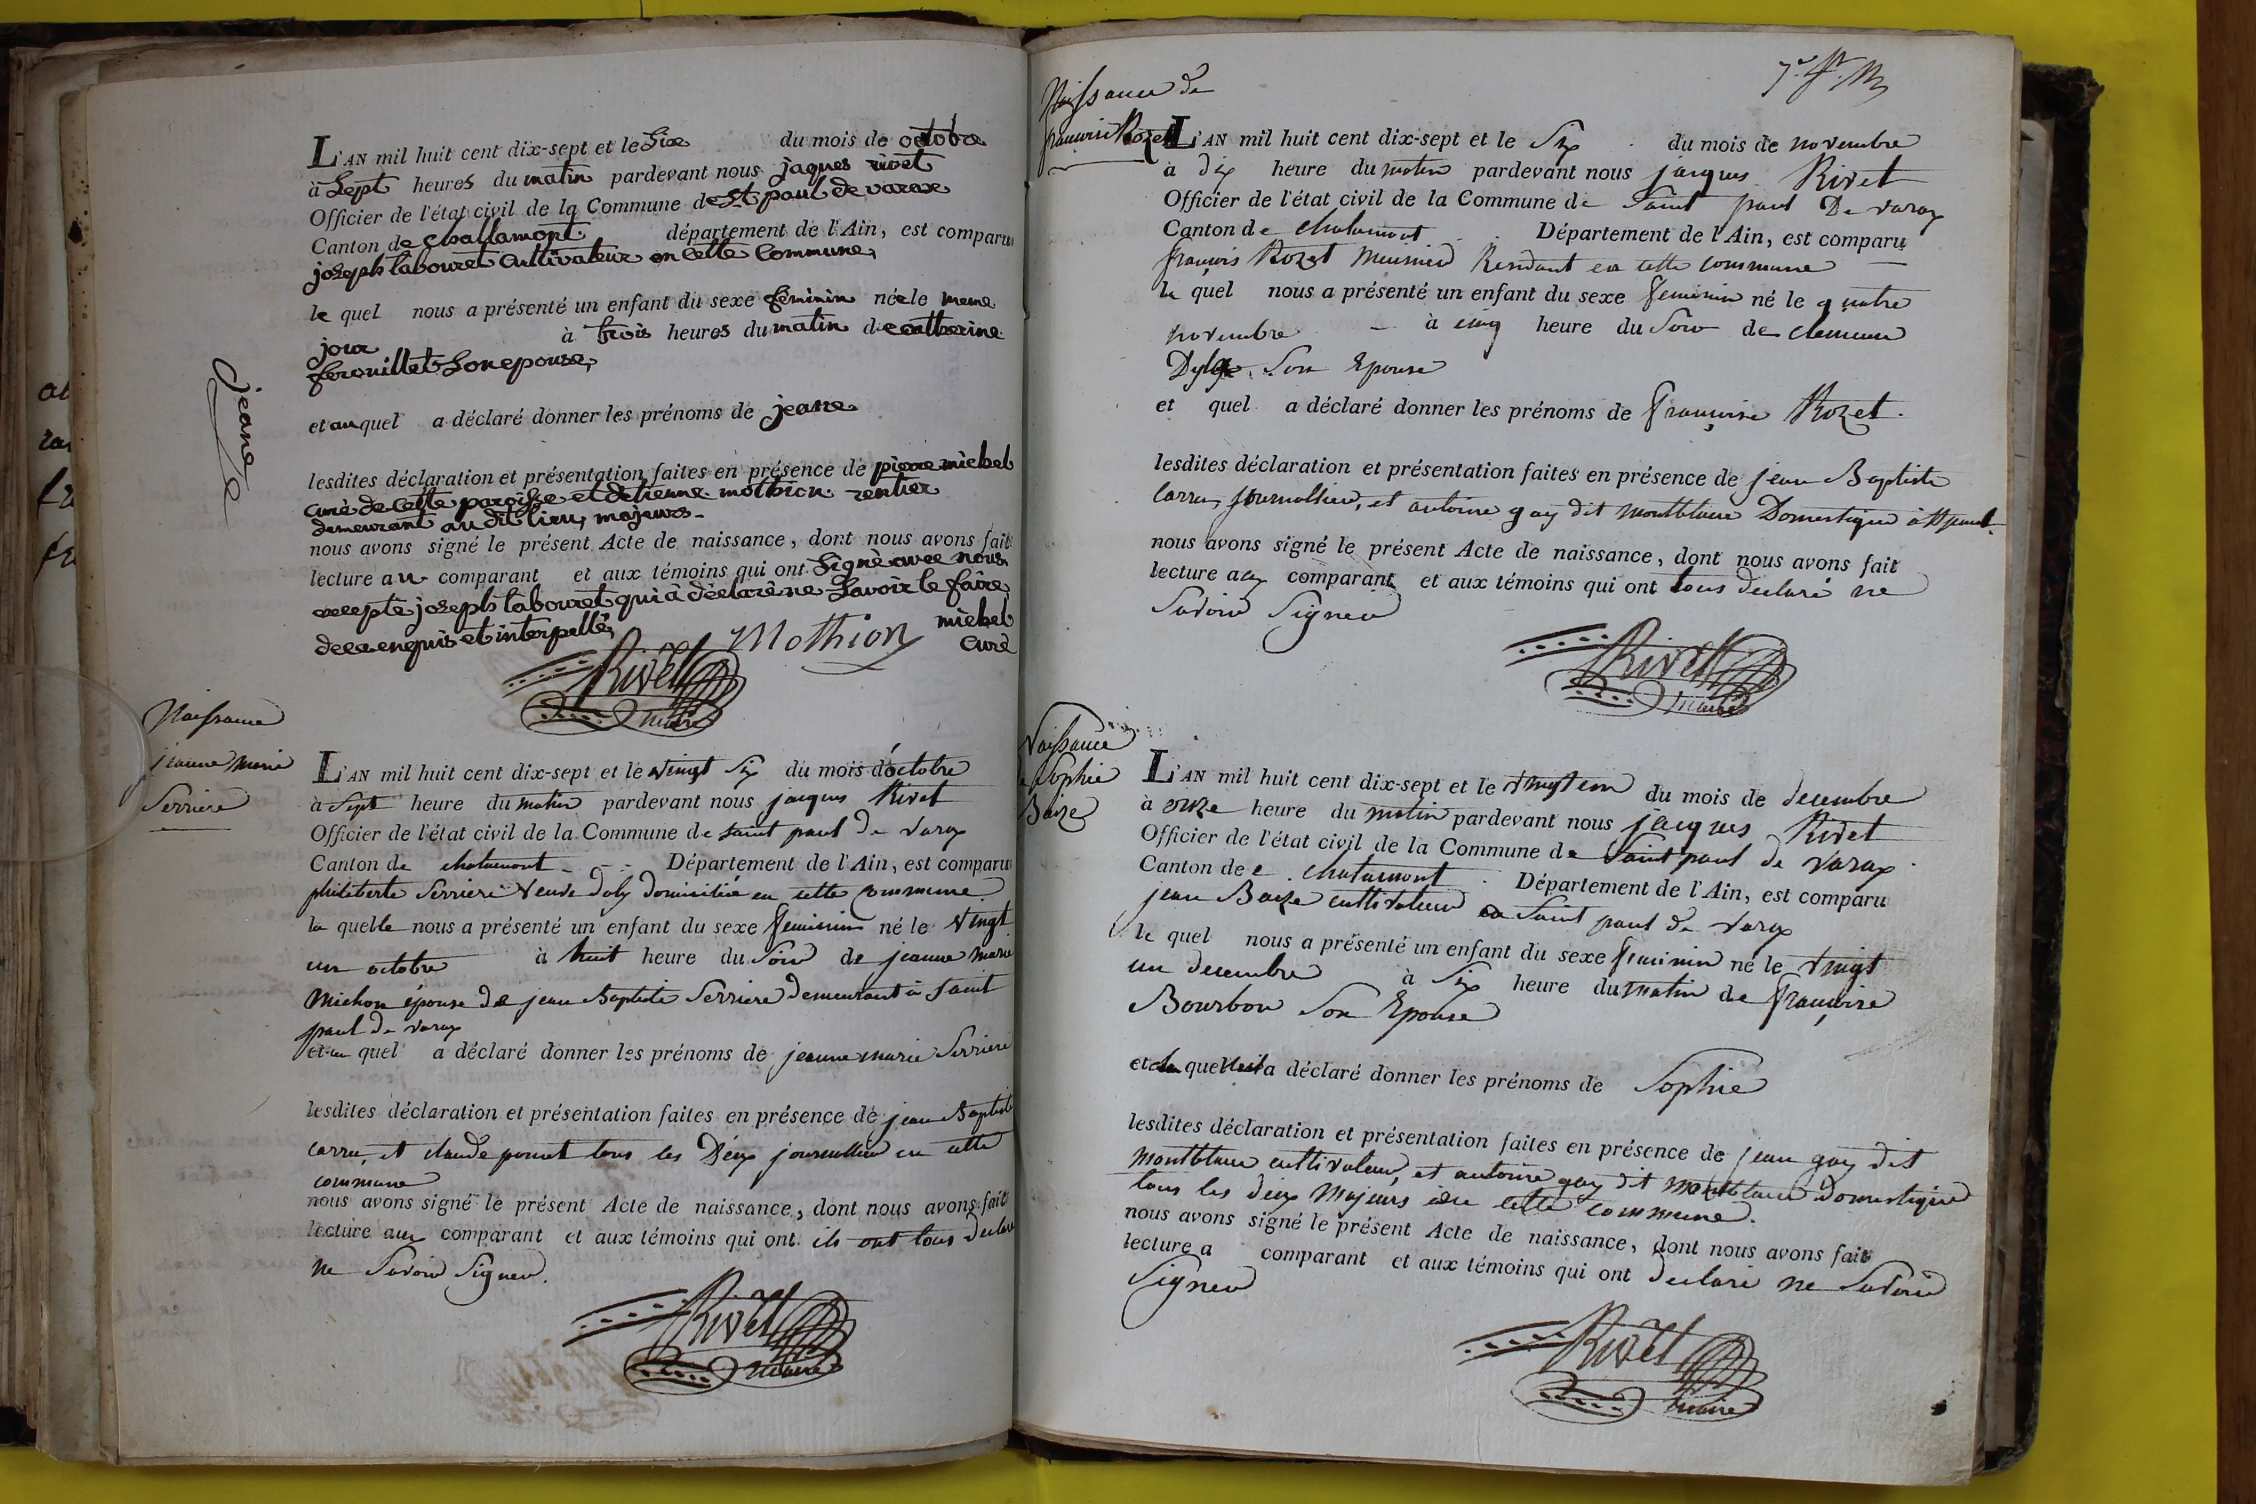 L'AN mil huit cent dix-sept et le Six du mois de octobre
à Sept heures du matin pardevant nous jaques rivet
Officier de l'état civil de la Commune de St paul de varax
Canton de challamont département de l'Ain, est comparu
joseph labouret Cultivateur en Cette Commune,
le quel nous a présenté un enfant du sexe feminin née le meme
jour à trois heures du matin de catherine
ferouillet Son epouse,
et au quel a déclaré donner les prénoms de jeane
jeane
lesdites déclaration et présentation faites en présence de pierre michel
curé de Cette paroisse et detienne mothion rentier
demeurant au dit lieu, majeurs
nous avons signé le présent Acte de naissance, dont nous avons fait
lecture au comparant et aux témoins qui ont Signé avec nous
excepte joseph labouret qui à déclaré ne Savoir le faire
de ce enquis et interpellé,
Mothion
michel
curé
Rivet
maire
Naissance
jeanne marie
Serriere
L'AN mil huit cent dix-sept et le vingt Six du mois d'octobre
à Sept heure du matin pardevant nous jacques Rivet
Officier de l'état civil de la Commune de saint paul de varax
Canton de chalamont Département de l'Ain, est comparu
philiberte Serriere veuve doly domiciliée en cette commune
la quelle nous a présenté un enfant du sexe feminin né le vingt
un octobre à huit heure du Soir de jeanne marie
Michon épouse de jean Baptiste Serriere demeurant à saint
paul de varax
et au quel a déclaré donner les prénoms de jeanne marie Serriere
lesdites déclaration et présentation faites en présence de jean Baptiste
carru, et claude ponset tous les Deux journallier en cette
commune
nous avons signé le présent Acte de naissance, dont nous avons fait
lecture aux comparant et aux témoins qui ont ils ont tous declaré
ne Savoir Signer.
Rivet
maire
Naissance de
françoise Rozet
L'AN mil huit cent dix-sept et le Six du mois de novembre
à dix heure du matin pardevant nous jacques Rivet
Officier de l'état civil de la Commune de Saint paul De varax
Canton de chalamont Département de l'Ain, est comparu
françois Rozet Meunier Residant en cette commune
le quel nous a présenté un enfant du sexe feminin né le quatre
novembre à cinq heure du Soir de
Son Epouse
et quel a déclaré donner les prénoms de françoise Rozet.
lesdites déclaration et présentation faites en présence de jean Baptiste
carru, journallier, et antoine gay dit montblanc Domestique à St paul
nous avons signé le présent Acte de naissance, dont nous avons fait
lecture aux comparant et aux témoins qui ont tous declaré ne
Savoir Signer
Rivet
maire
Naissance
Sophie
Baize
L'AN mil huit cent dix-sept et le vingt un du mois de decembre
à onze heure du matin pardevant nous jacques Rivet
Officier de l'état civil de la Commune de Saint paul de varax
Canton de chalamont Département de l'Ain, est comparu
jean Baize cultivateur a Saint paul de varax
le quel nous a présenté un enfant du sexe feminin né le vingt
un decembre à Six heure du matin de françoise
Bourbon Son Epouse
et quel a déclaré donner les prénoms de Sophie
lesdites déclaration et présentation faites en présence de jean gay dit
montblanc cultivateur, et antoine gay dit montblanc Domestique
tous les deux Majeurs de cette commune.
nous avons signé le présent Acte de naissance, dont nous avons fait
lecture a comparant et aux témoins qui ont declaré ne Savoir
Signer
Rivet
maire